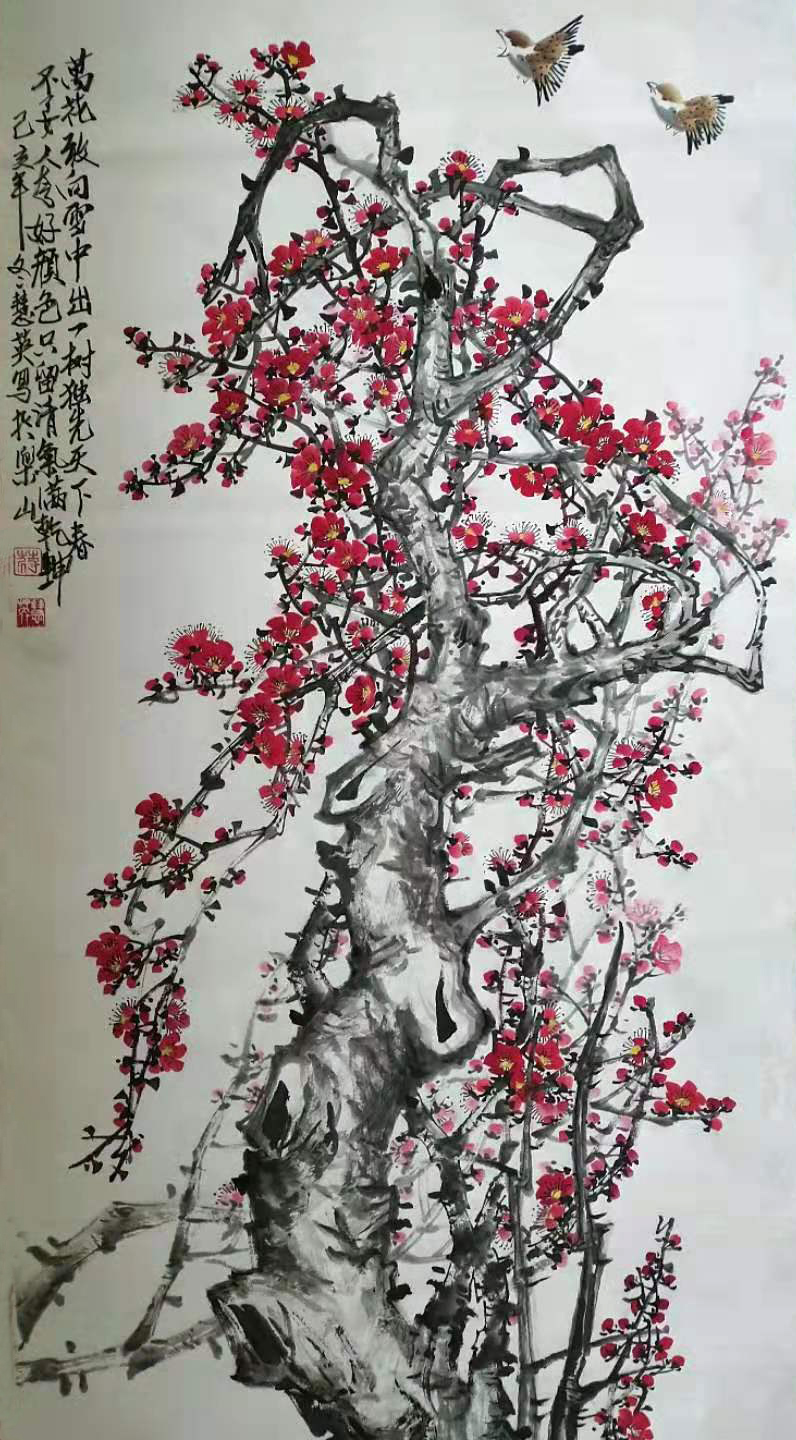 萬花敢向雪中出一树独先天下春
不要人夸好颜色只留清氣满乾坤
己亥年冬慧英写於樂山
慧英